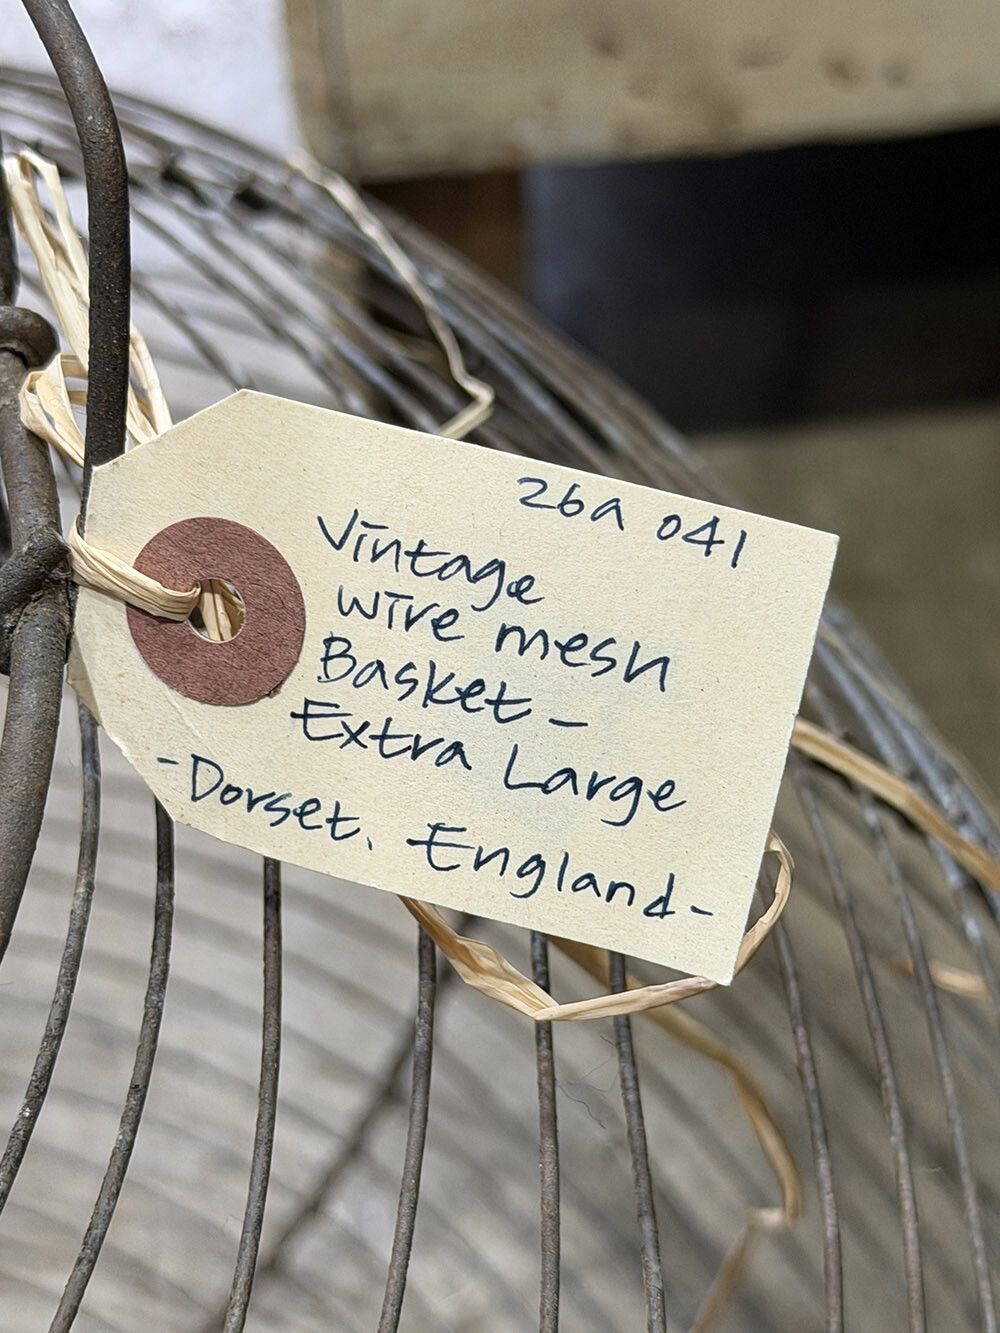 26A 041
Vintage
wire mesh
Basket -
Extra Large
-Dorset, England-